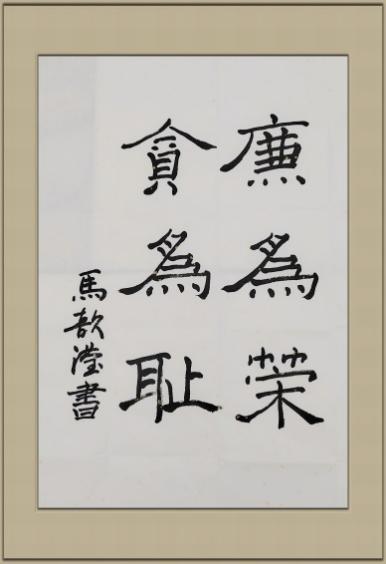 廉為榮
貪為耻
馬歆瀅書